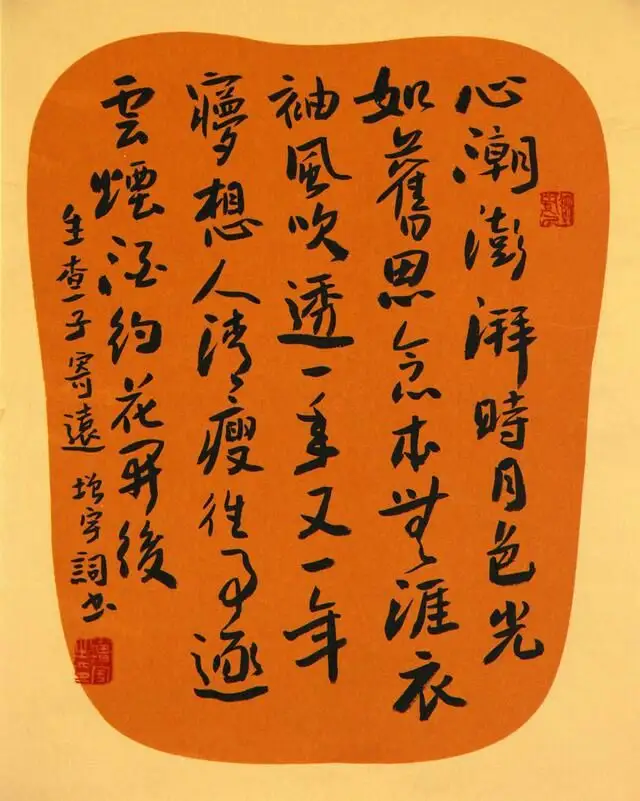 心潮澎湃時月色光
如舊思念本無涯衣
袖風吹透一年又一年
夢想人清瘦往事逐
雲煙酒約花開後
生查子寄遠 增宇詞書